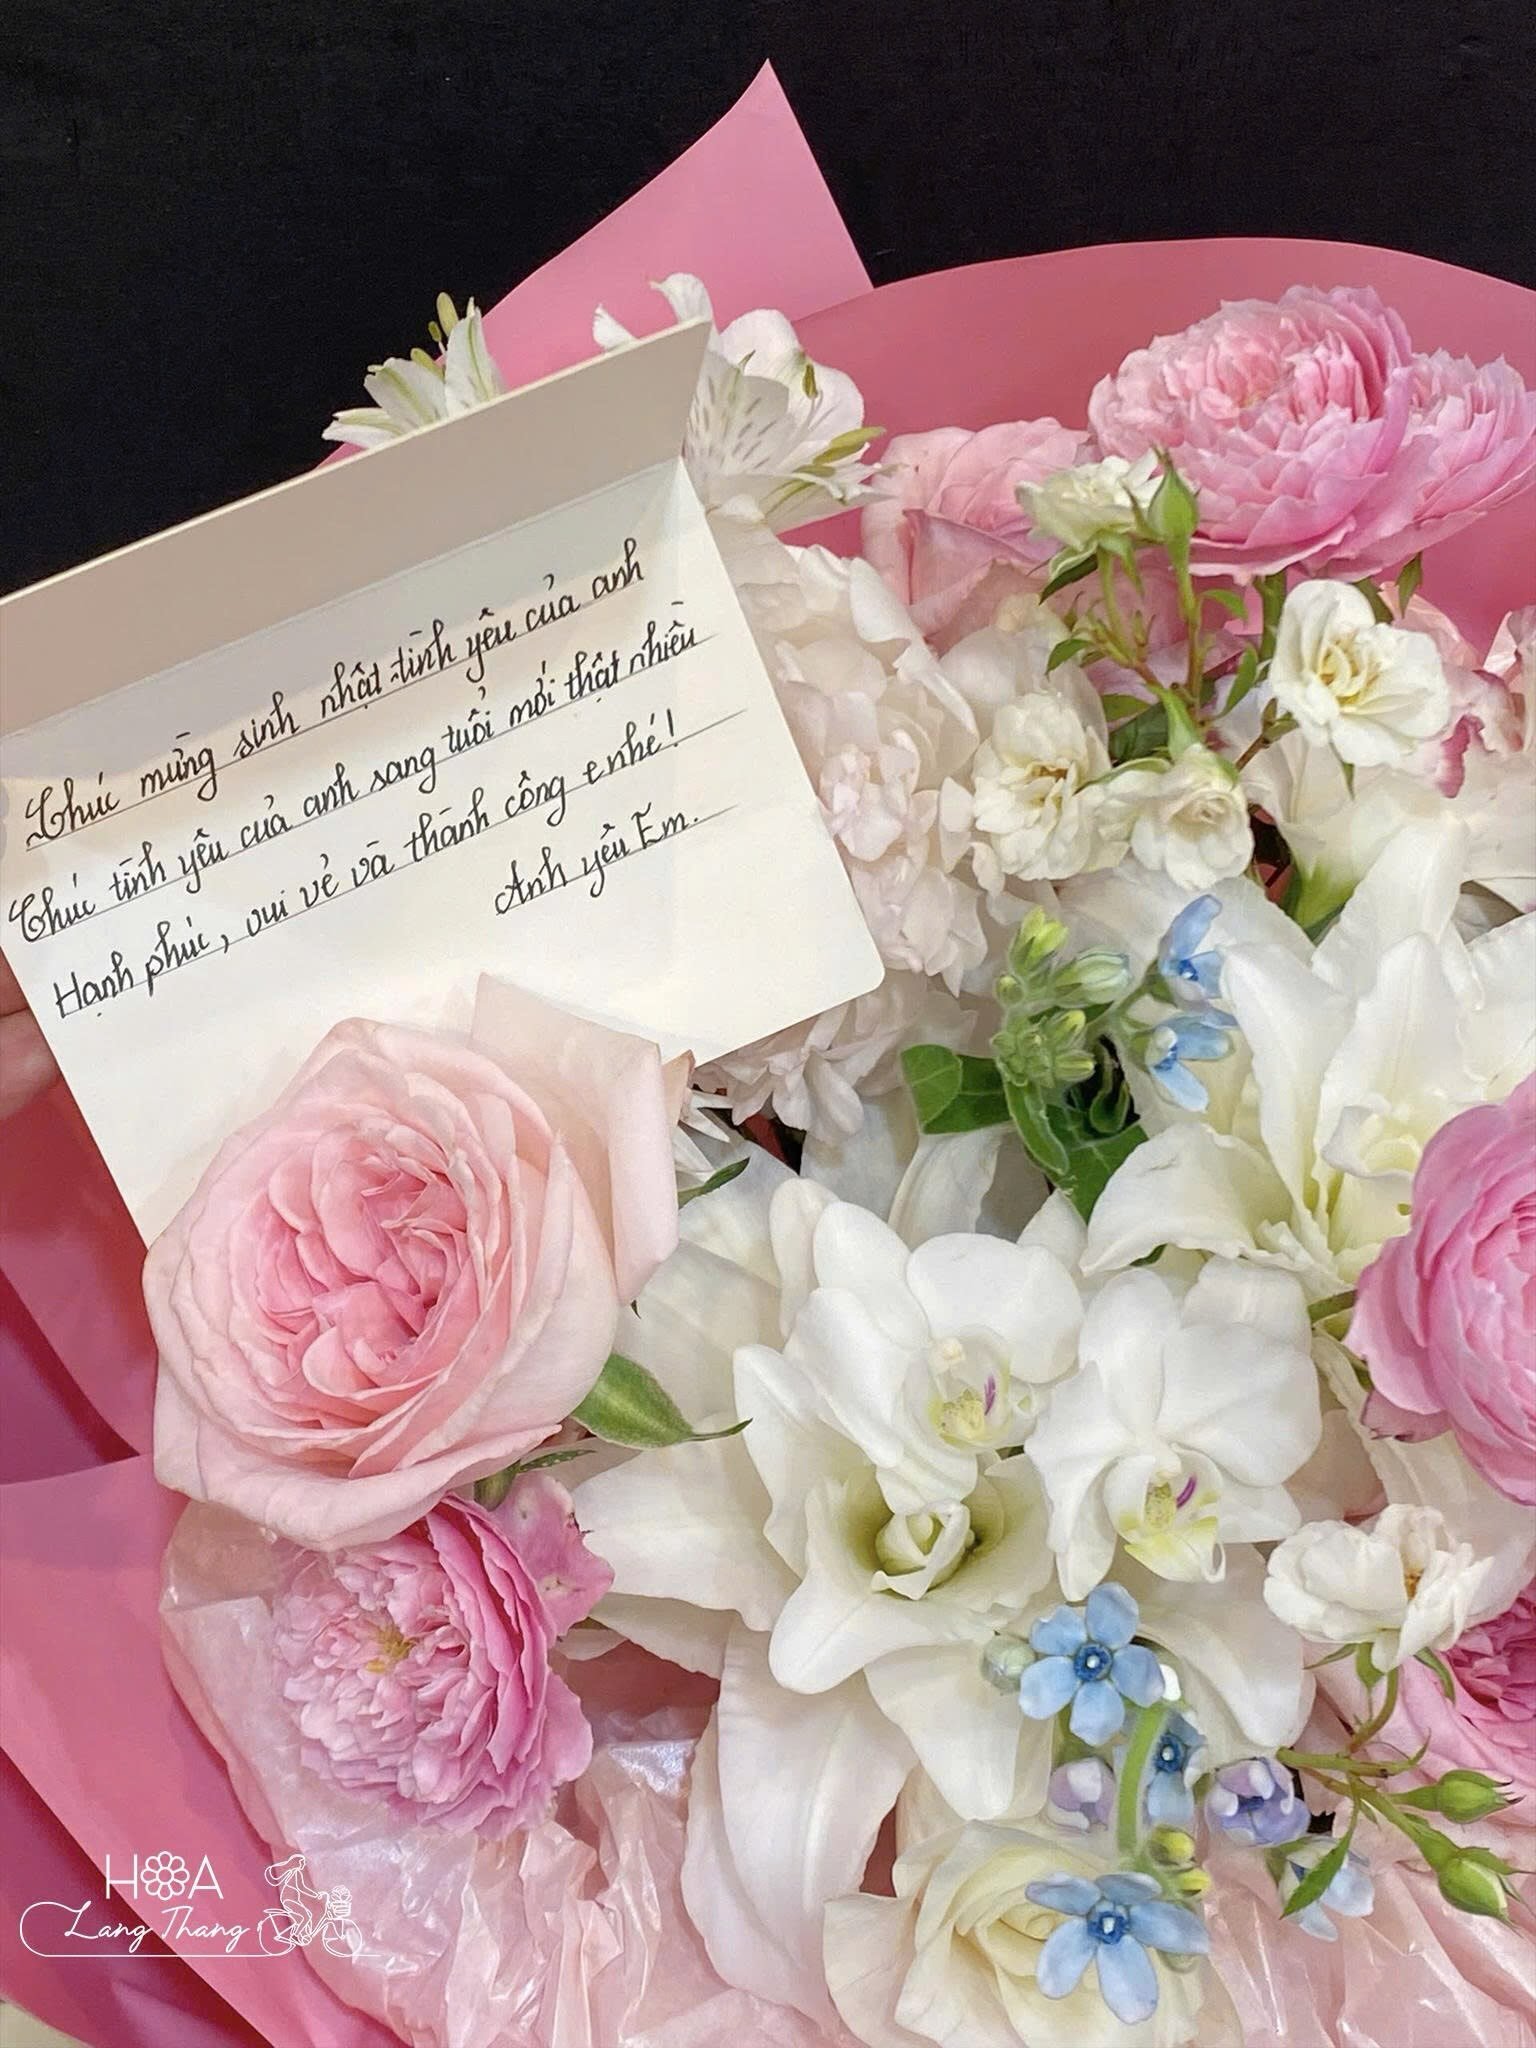 Chúc mừng sinh nhật tình yêu của anh
Chúc tình yêu của anh sang tuổi mới thật nhiều
Hạnh phúc, vui vẻ và thành công enhé!
Anh yêu Em.
HOA
Lang Thang